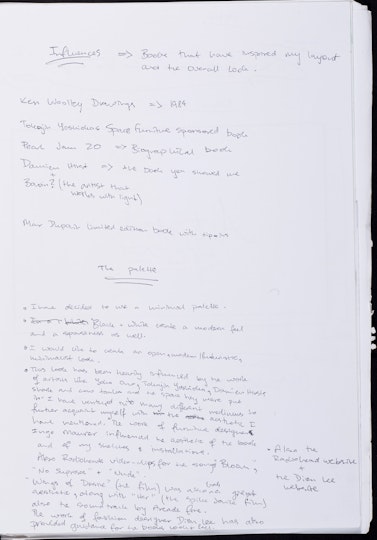 Influences => Books that have inspired my layout
and the overall look.
Ken Woolley Drawings => 1989
Tokujin Yoshioka Space Furniture sponsored book
Pearl Jam 20 => Biographical book
Damien Hirst => the book you showed me
+
? (the artist that
works with light)
limited edition book with
The palette
I have decided to use a minimal palette.
Black + white create a modern feel
and a spaciousness as well.
I would like to create an open modern
minimalist look.
This look has been heavily influenced by the work
of artists like Tokujin Yoshioka, Damien Hirst's
shark and cow tanks and the space they were put
in. I have ventured into many different mediums to
further acquaint myself with the aesthetic I
have mentioned. The work of furniture designer
influenced the aesthetic of the books
and of my sketches + installations.
Also Radiohead video-clips for the songs "Bloom",
"No Surprises" + "Nude".
"Wings of Desire" (art film) was also a great
aesthetic, along with "Her" (the Spike Jonze film)
also the soundtrack by Arcade Fire.
The work of fashion designer Dion Lee has also
provided guidance for the books
Also the
Radiohead website
+
the Dion Lee
website